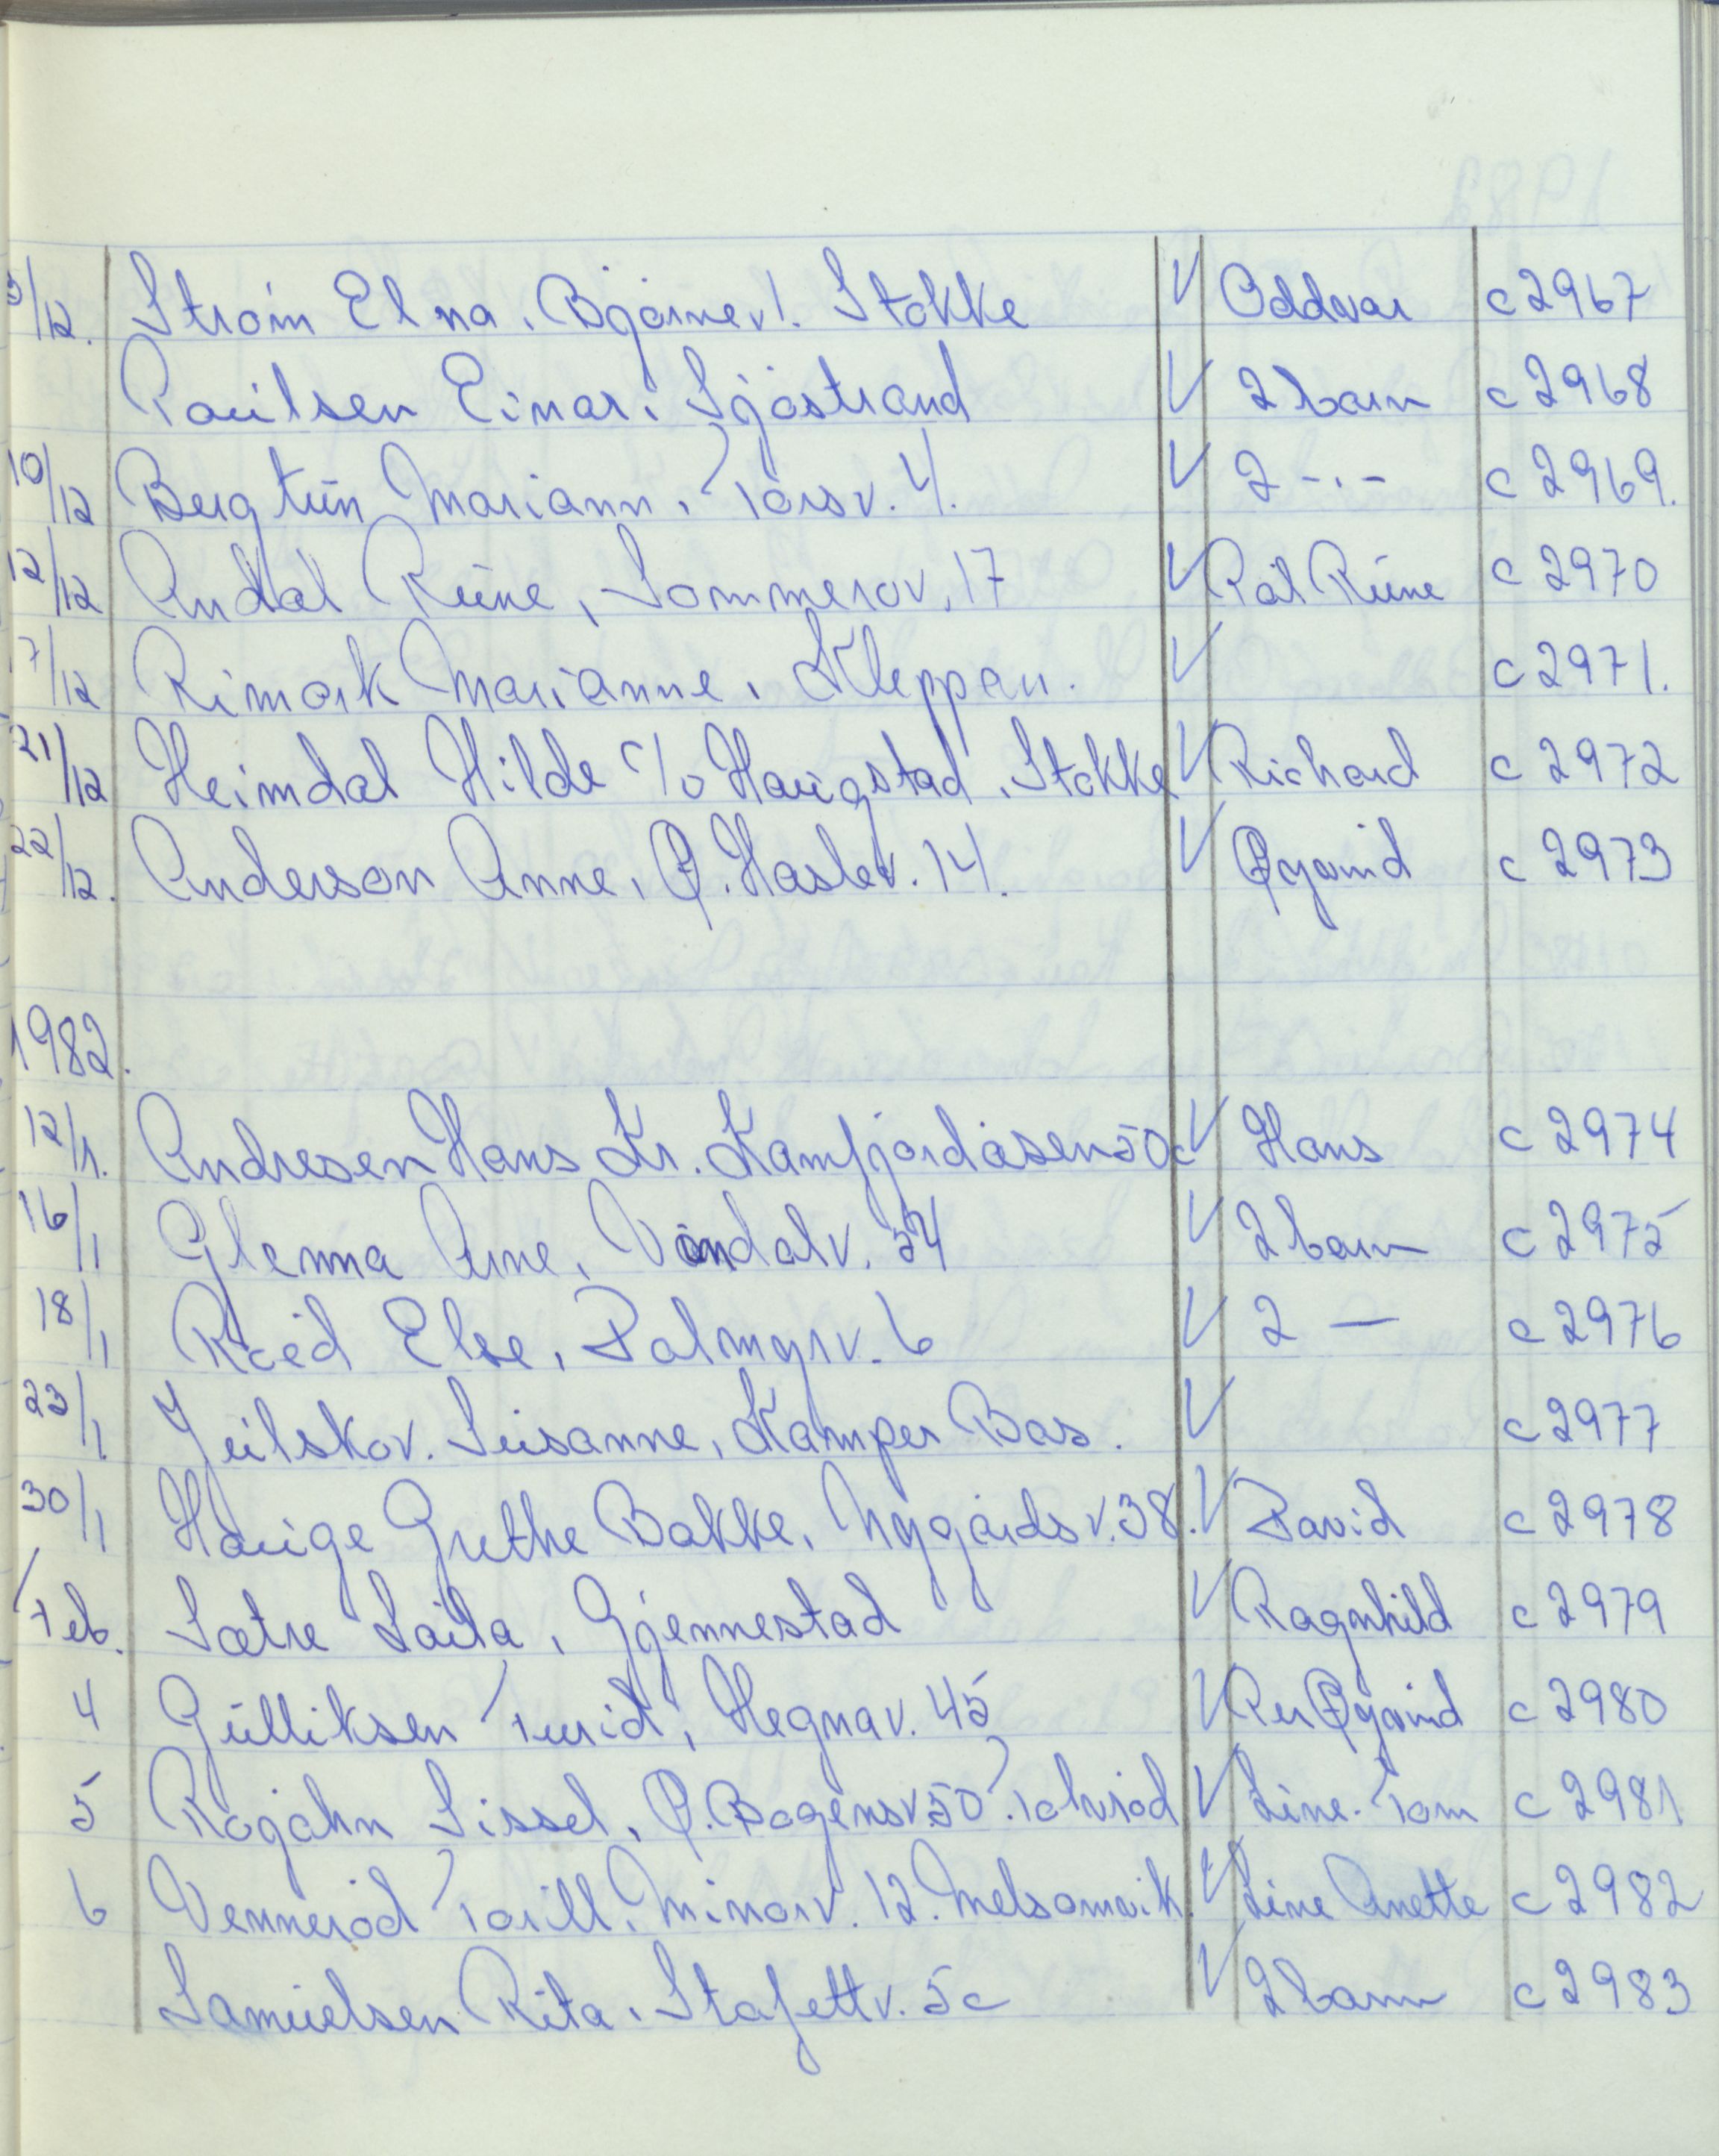 5/12. Strøm Elna. Bjørnev 1. Stokke V Oddvar c 2967
Paulsen Einar. Sjøstrand V 2 barn c 2968
10/12 Bergtun Mariann. Torsv. 4. V 2 -.- c 2969.
12/12 Andal Rune, Sommerov. 17 V Pål Rune c 2970
17/12 Rimork Marianne. Kleppan. V c 2971.
21/12 Heimdal Hilde c/o Haugstad. Stokke V Richard c 2972
22/12. Anderson Anne. Ø. Haslev. 14. V Øyvind c 2973
1982.
12/1. Andresen Hans Kr. Kamfjordåsen 50c V Hans c 2974
16/1 Glenna Arne. Vandalv. 54 V 2 barn c 2975
18/1 Røed Else. Palmyrv. 6 V 2 — c 2976
23/1. Juilskov. Susanne, Kamper Bas. V c 2977
30/1 Hauge Grethe Bakke. Nygårds v. 38. V David c 2978
Feb. Sætre Laila. Gjennestad V Ragnhild c 2979
4 Gulliksen Turid, Hegnav. 45 V Per Øyvind c 2980
5 Rogahn Sissel. Ø. Bogensv. 50. Tolvsrød V Line-Tom c 2981
6 Vennerød Torill. Minorv. 12. Melsomvik. V Line Anette c 2982
Samuelsen Rita. Stafettv. 5c V 2 barn c 2983